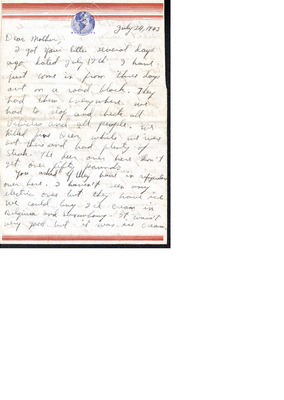 July 24, 1945
Dear Mother,
I got your letter several days
ago dated July 12th. I have
just come in from three days
out on a road block. They
had them everywhere. we
had to stop and check all
vehicles and all people. we
killed four deer while we was
out there and had plenty of
steak. The deer over here don't
get over fifty pounds.
You asked if they have
over here. I haven't seen any
electric ones but they have ice
We could buy Ice cream in
Belgium and Luxembourg. It wasn't
very good but it was ice cream